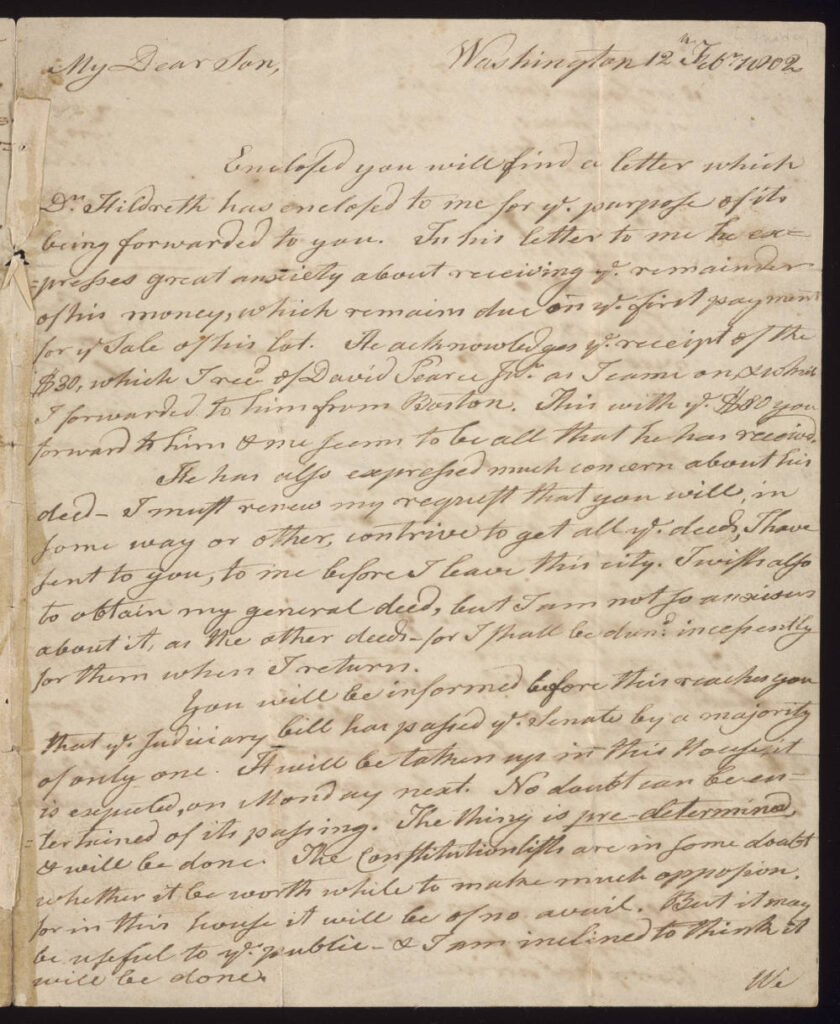 My Dear Son, Washington 12th Feby. 1802
Enclosed you will find a letter which
Dr. Hildreth has enclosed to me for ye. purpose of its
being forwarded to you. In his letter to me he ex=
=presses great anxiety about receiving ye. remainder
of his money, which remains due on ye. first payment
for ye Sale of his lot. He acknowledges ye. receipt of the
$30, which I recd. of David Pearce Jnr. as I came on, & which
I forwarded to him from Boston. This with ye. $80 you
forward to him & me seems to be all that he has received.
He has also expressed much concern about his
deed – I must renew my request that you will, in
some way or other, contrive to get all ye. deeds, I have
sent to you, to me before I leave this city. I wish also
to obtain my general deed, but I am not so anxious
about it, as the other deeds – for I shall be dund. incessently
for them when I return.
You will be informed before this reaches you
that ye. Judiciary bill has passed ye. Senate by a majority
of only one. It will be taken up in this House it
is expected, on Monday next. No doubt can be en=
=tertained of its passing. The thing is pre-determined,
& will be done. The Constitutionlists are in some doubt
whether it be worth while to make much opposion.
for in this house it will be of no avail. But it may
be useful to ye. public – & I am inclined to think it
will be done.
We